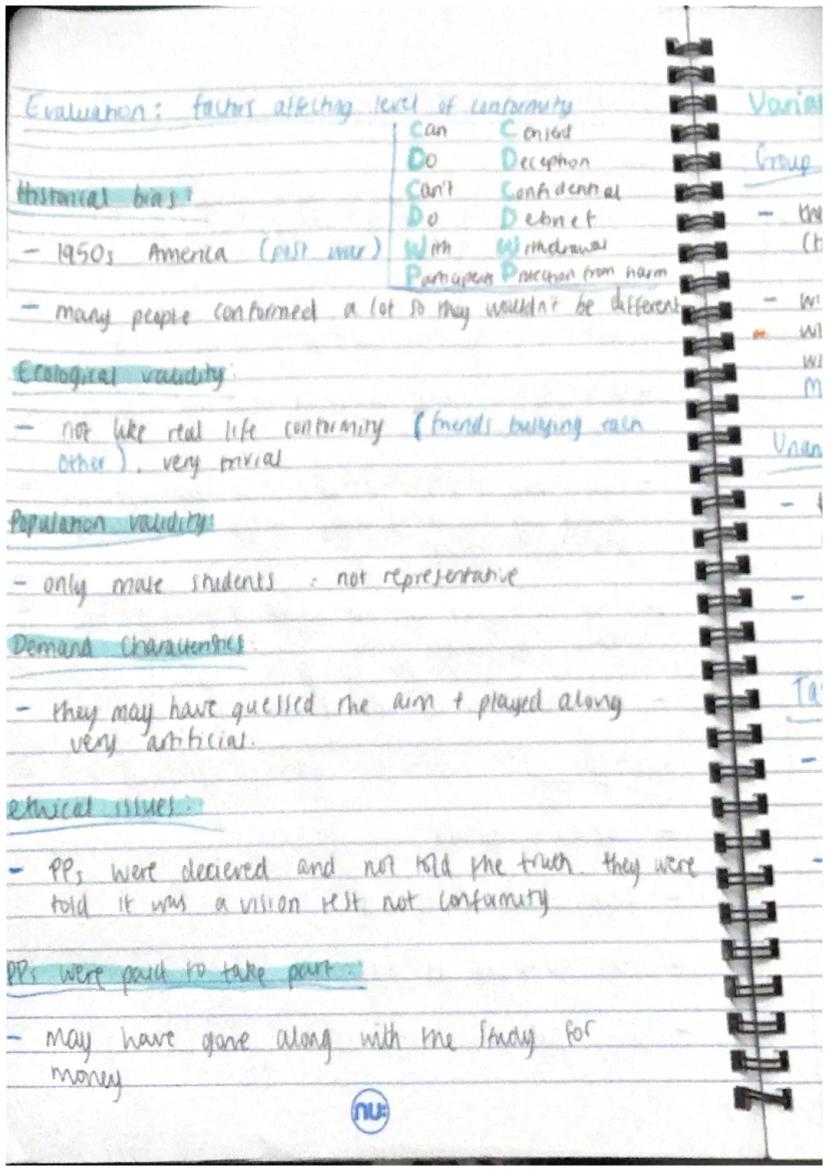 Evaluation: factors affecting level of conformity
Can Consent
Do Deception
Can't Confidential
Do Debrief
With Withdrawal
Participents Protection from harm
Historical bias:
- 1950s America (post war)
- many people conformed a lot so they wouldn't be different
Ecological validity:
- not like real life conformity (friends bullying each
other). very trivial
Population validity:
- only male students : not representative
Demand Characteristics:
- they may have guessed the aim + played along
very artificial.
ethical issues:
- PPs were decieved and not told the truth. they were
told it was a vision test not conformity
PPs were paid to take part:
- may have gone along with the study for
money
nu:
Group